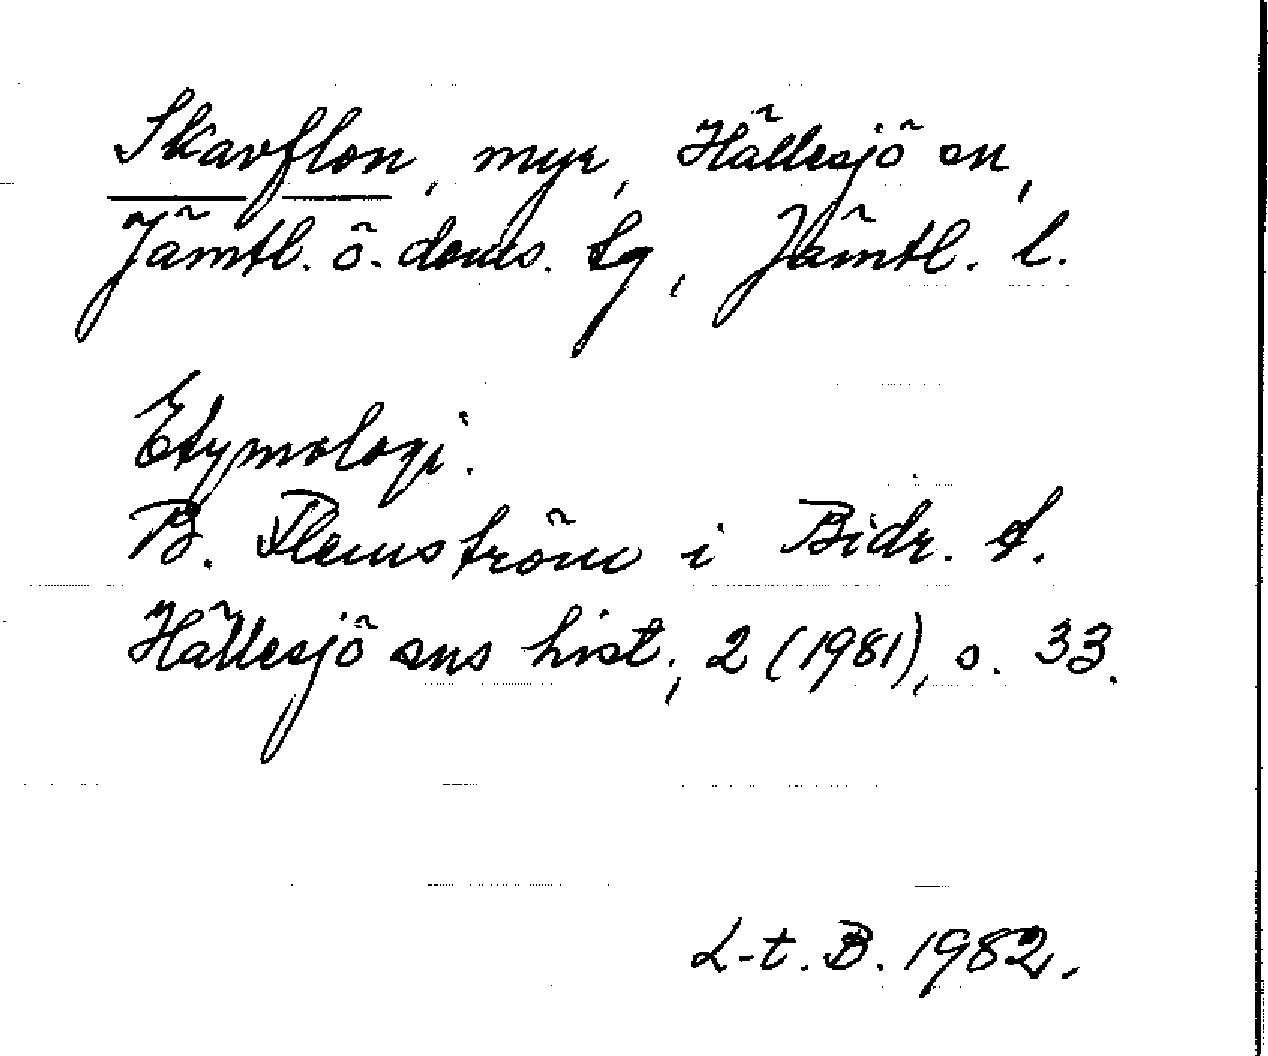 Skavflon, myr, Hällesjö sn,
Jämtl. ö. doms. tg, Jämtl. l.
Etymologi.
B. Flemström i Bidr. t.
Hällesjö sns hist., 2 (1981), s. 33.
L-t. B. 1982.